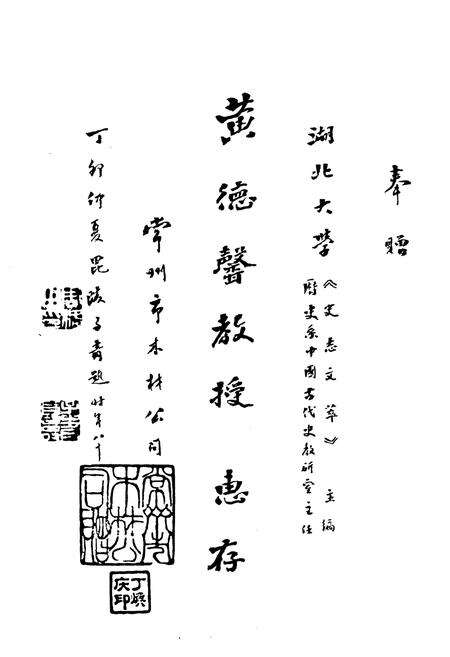 奉贈
湖北大學
《史志文萃》主编
歷史系中國古代史教研室主任
黄德馨教授惠存
常州市木材公司
丁卯仲夏毘陵子青題時年八十
丁煥庆印